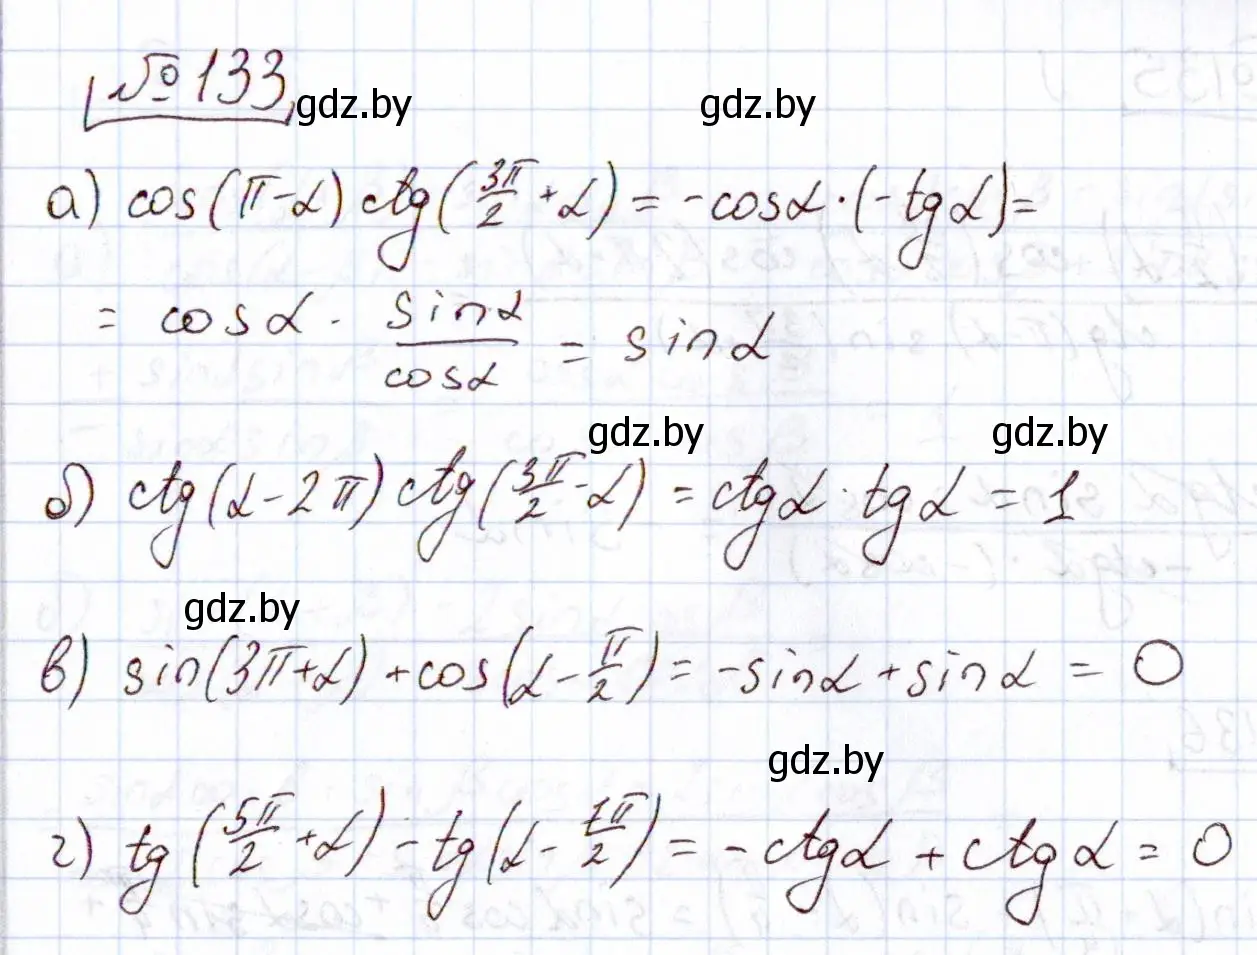 №133
gdz.by gdz.by
а) cos(π-α) ctg(3π/2 +α) = -cosα·(-tgα)=
= cosα · sinα/cosα = sinα
gdz.by gdz.by
б) ctg(α-2π) ctg(3π/2 -α) = ctgα·tgα = 1
gdz.by
в) sin(3π+α) +cos(α-π/2) = -sinα+sinα = 0
gdz.by
г) tg(5π/2 +α) - tg(α- 7π/2) = -ctgα + ctgα = 0